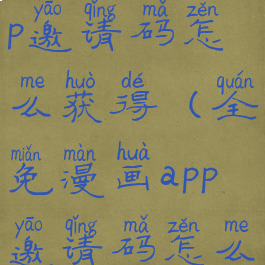 yāo qǐng mǎ zěn
p邀请码怎
me huò dé quán
么获得（全
miǎn màn huà
免漫画app
yāo qǐng mǎ zěn me
邀请码怎么